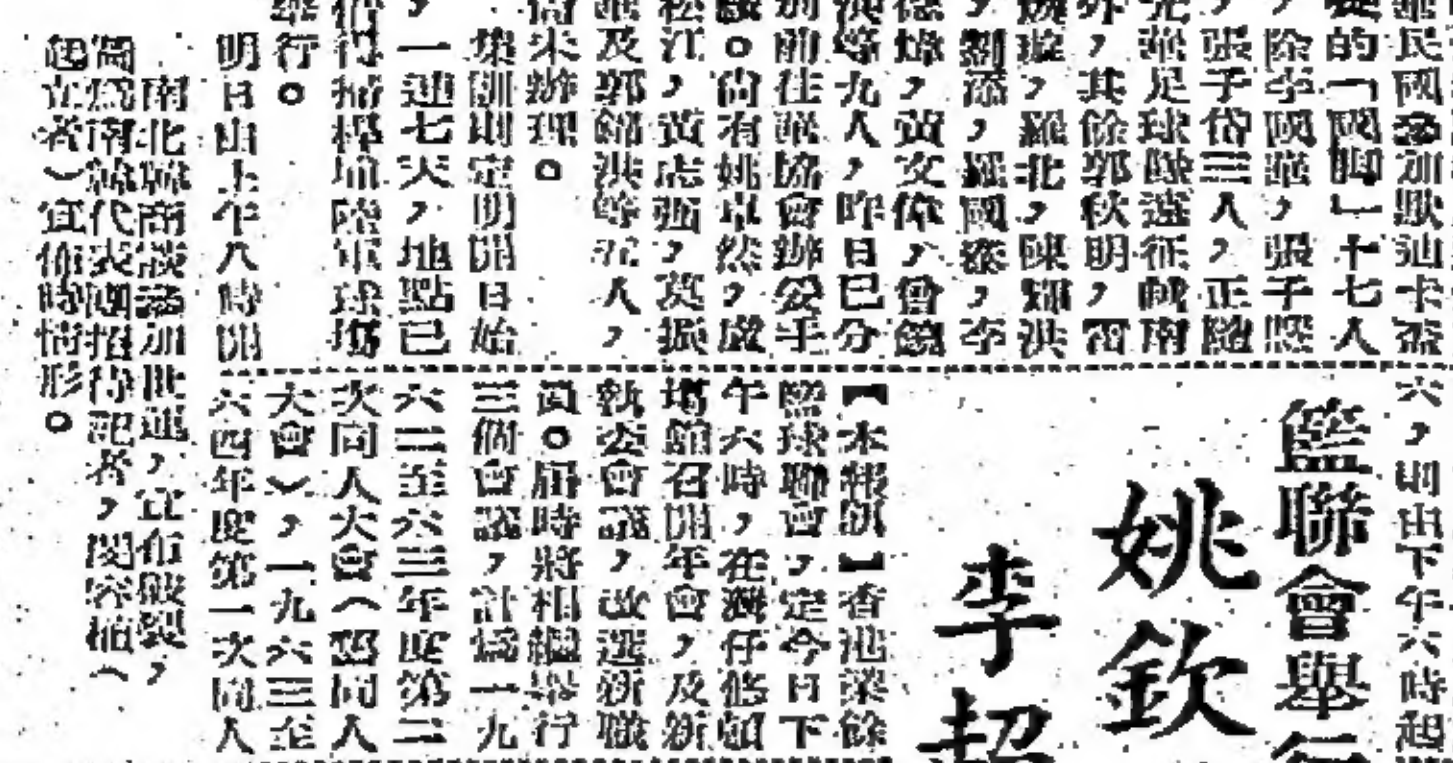 華民國參加默迪卡盃
的「國脚」十七人
，除李國華，張子慧
，張子岱三人，正隨
華足球隊遠征越南
外，其餘郭秋明，
，羅北，陳輝洪
，劉添，羅國泰，李
，黃文偉，曾鏡
等九人，昨日已分
別前往華協會辦公手
。尚有姚卓然，
松江，黃志強，莫振
華及郭錦洪等五人，
尚未辦理。
集訓則定明開日始
，一連七天，地點已
掃桿埔陸軍球塲
舉行。
明日由上午八時開
六，則由下午六時起
籃聯會舉行
姚欽
李超
【本報訊】香港業餘
籃球聯會，定今日下
午六時，在灣仔修頓
塲館召開年會，及新
執委會議，改選新職
員。屆時將相繼舉行
三個會議，計爲一九
六二至六三年度第二
次同人大會（卽同人
大會），一九六三至
六四年度第一次同人
南北韓商談參加世運，宣布破裂，
圖爲南韓代表團招待記者，閔容植（
起立者）宣佈時情形。